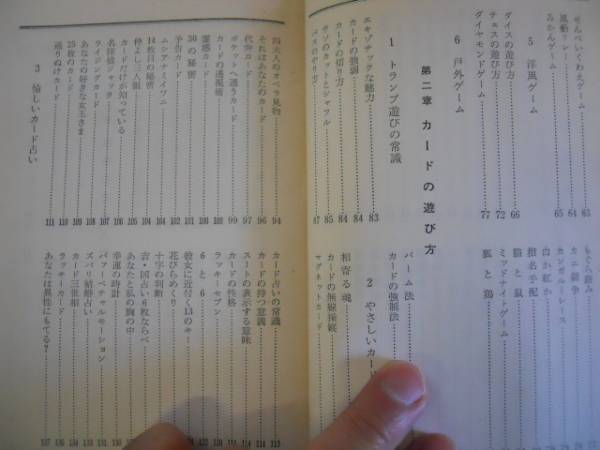 せんべいくわえゲーム 63
風動リレー 64
みかんゲーム 65
5 洋風ゲーム
ダイスの遊び方 66
チェスの遊び方 72
ダイヤモンドゲーム 77
6 戸外ゲーム
もぐら踏み
カニ競争
カンガルー・レース
白か紅か
指名手配
猫と鼠
ミッドナイ・ゲーム
狐と鶏
第二章 カードの遊び方
1 トランプ遊びの常識
エキゾチックな魅力 83
カードの強弱 84
カードの切り方 84
ウソのカットとシャフル 85
パスのやり方 87
パーム法
カードの強制法
2 やさしいカード
相寄る魂
カードの無線操縦
マグネットカード
四大人のオペラ見物 94
それはあなたのカード 96
代弁カード 97
ポケットへ通うカード 99
カードの透視術 100
霊感カード 100
30の秘密 101
予告カード 102
ムシアナミイワニ 104
14枚目の秘密 104
仲よし三人組 105
カードだけが知っている 106
名探偵ジャック 107
ライジングカード 108
あなたの好きな女王さま 108
25枚のカード 109
通りぬけカード 110
3 愉しいカード占い 111
カード占いの常識 112
カードの持つ意義 114
スートの表示する意味
カードの性格
ラッキーセブン
6と6
彼女に近付く13のキー
花びらめくり
十字の判断
吉・凶占い6枚ならべ
あなたと私の胸の中
幸運の時計
パァーペチャルモーション
ズバリ結婚占い
カード三世相
ラッキーカード
あなたは異性にもてる？